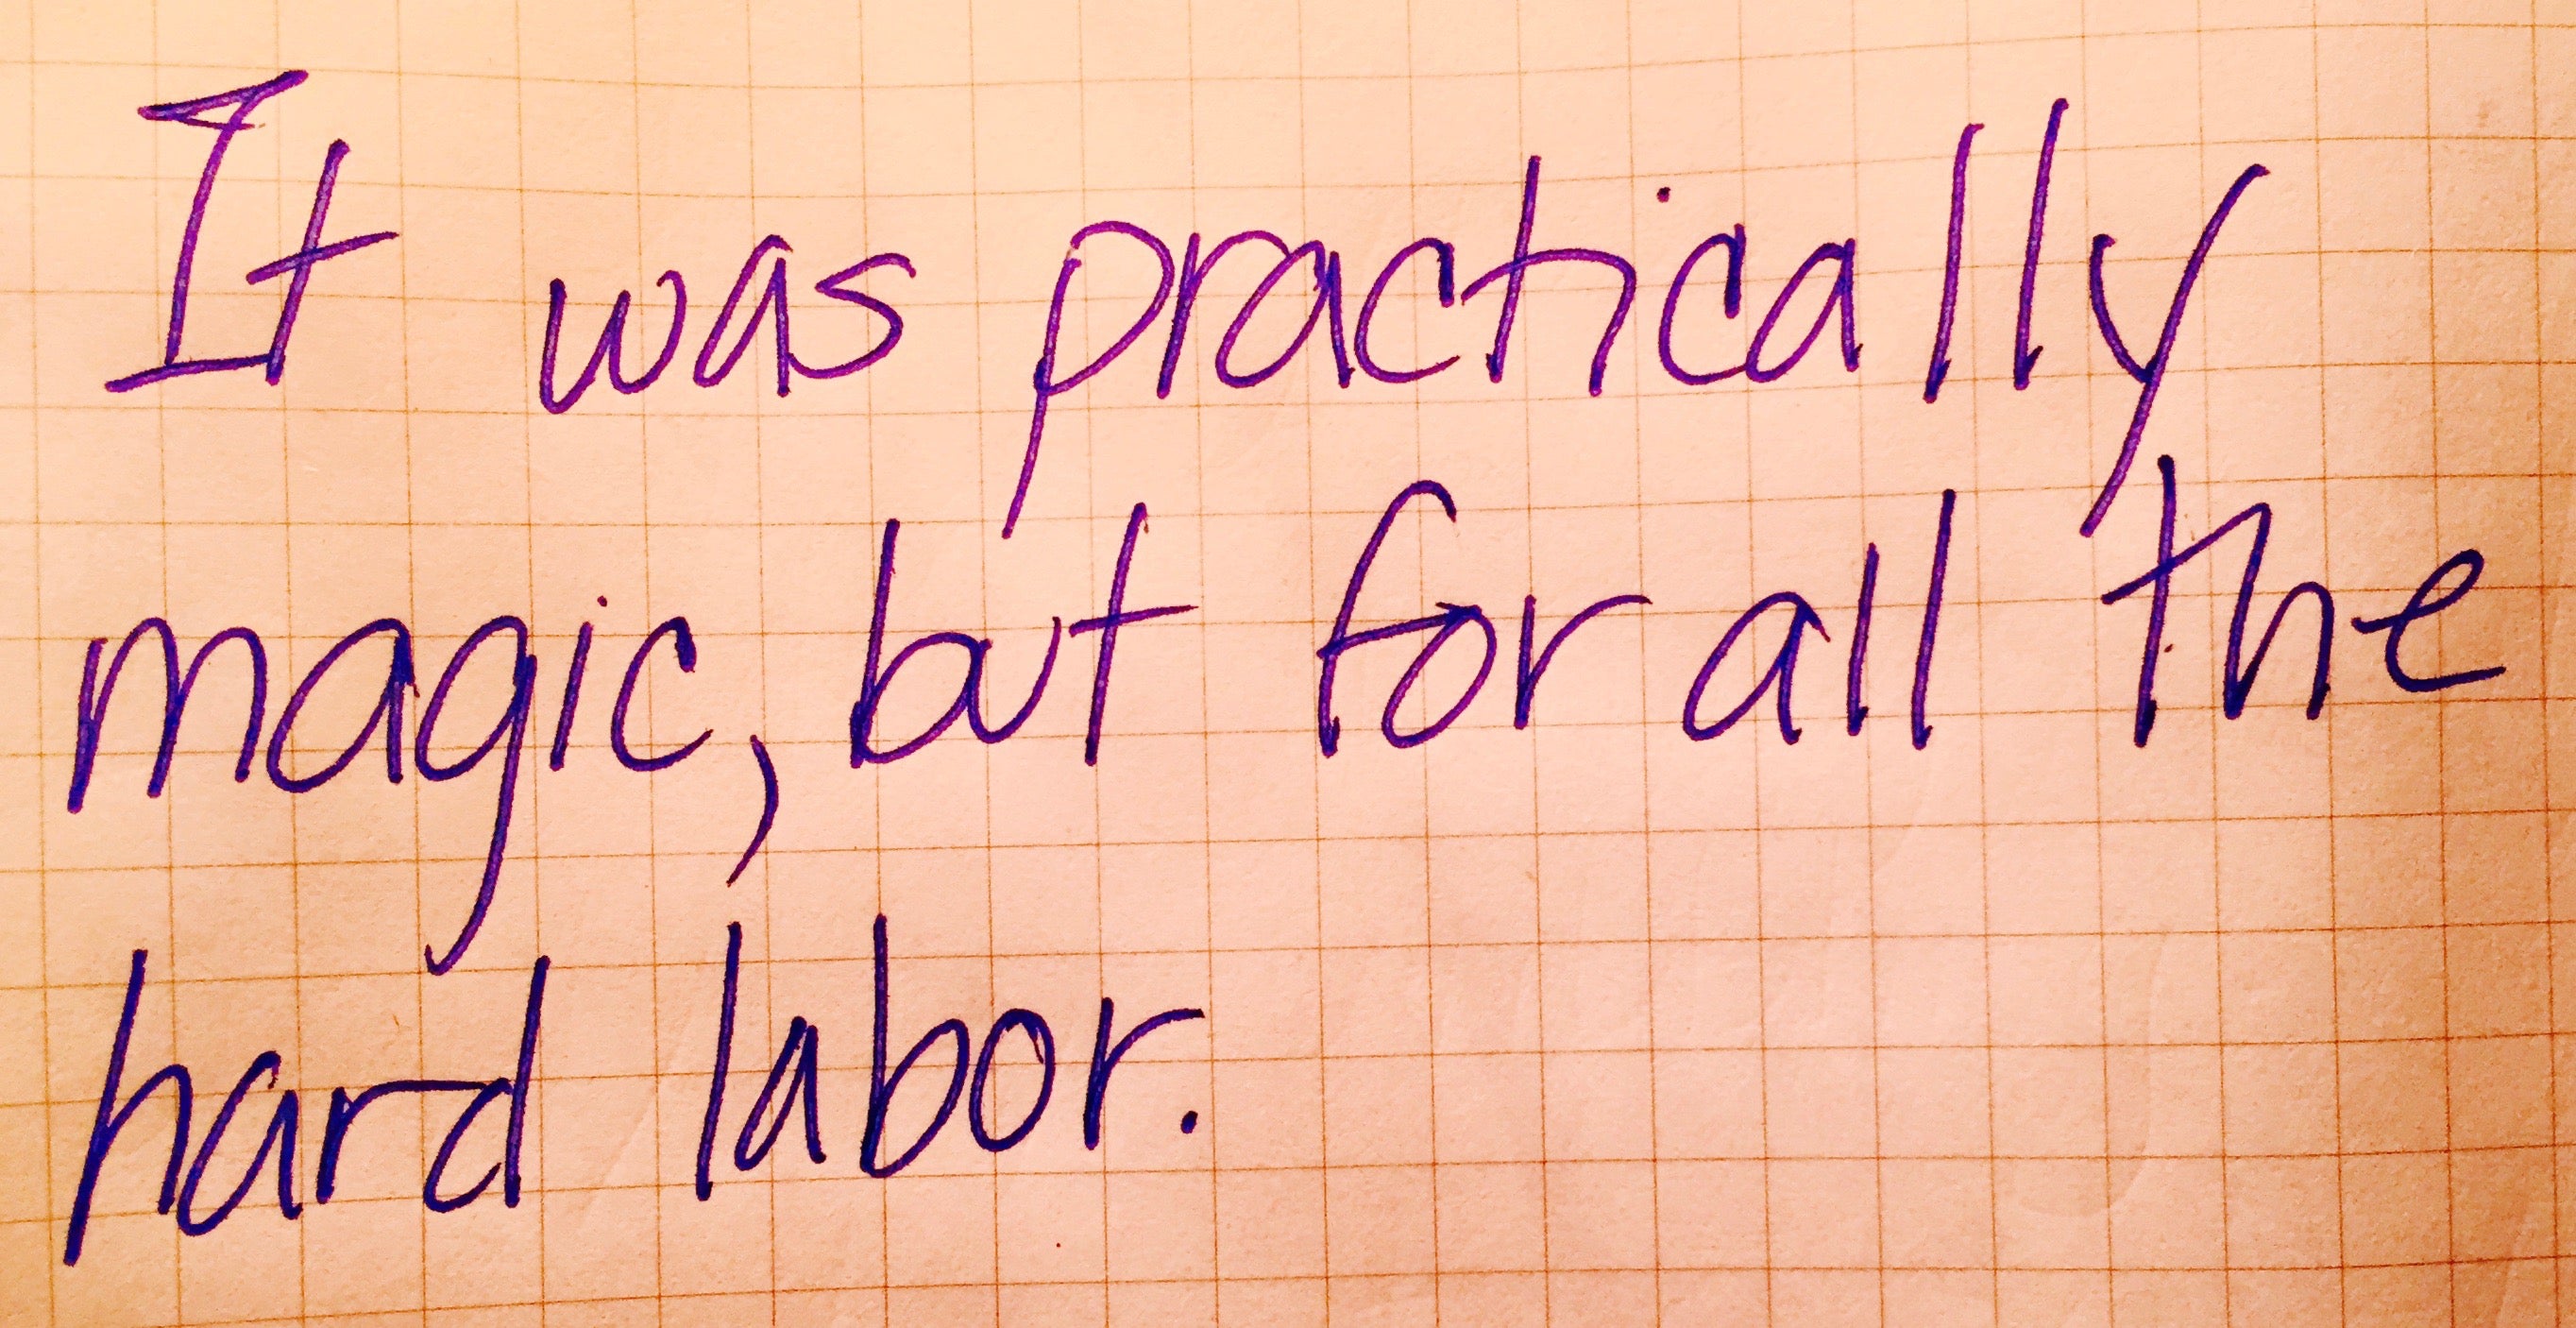 It was practically
magic, but for all the
hard labor.